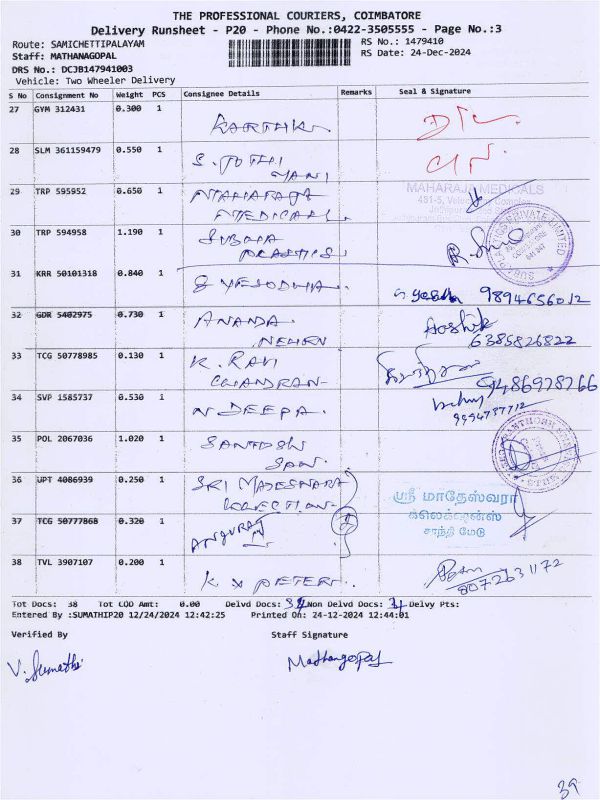 THE PROFESSIONAL COURIERS, COIMBATORE
Delivery Runsheet - P20 - Phone No.:0422-3505555 - Page No.:3
Route: SAMICHETTIPALAYAM RS No.: 1479410
Staff: MATHANAGOPAL RS Date: 24-Dec-2024
DRS No.: DCJB147941003
Vehicle: Two Wheeler Delivery
S No Consignment No Weight PCS Consignee Details Remarks Seal & Signature
27 GYM 312431 0.300 1
KARTHIK
28 SLM 361159479 0.550 1
S. JOTHI
MANI
29 TRP 595952 0.650 1 MAHARAJA MAHARAJA MEDICALS
MEDICALS
30 TRP 594958 1.190 1 SUBHA
PLASTICS
31 KRR 50101318 0.840 1 S YESODHA 9894656012
32 GDR 5402975 0.730 1 ANANDA Aashik
NEHRU 6385826822
33 TCG 50778985 0.130 1 K. RAVI
CHANDRAN
34 SVP 1585737 0.530 1 N DEEPA
35 POL 2067036 1.020 1 SANTOSH
36 UPT 4086939 0.250 1 SRI MADESWARA ஸ்ரீ மாதேஸ்வரா
COLLECTION கலெக்ஷன்ஸ்
37 TCG 50777868 0.320 1 சாந்தி மேடு
38 TVL 3907107 0.200 1
K V PETER 8072631172
Tot Docs: 38 Tot COD Amt: 0.00 Delvd Docs: Non Delvd Docs: Delvy Pts:
Entered By :SUMATHIP20 12/24/2024 12:42:25 Printed On: 24-12-2024 12:44:01
Verified By Staff Signature
V. Sumathi Madhangopal
39